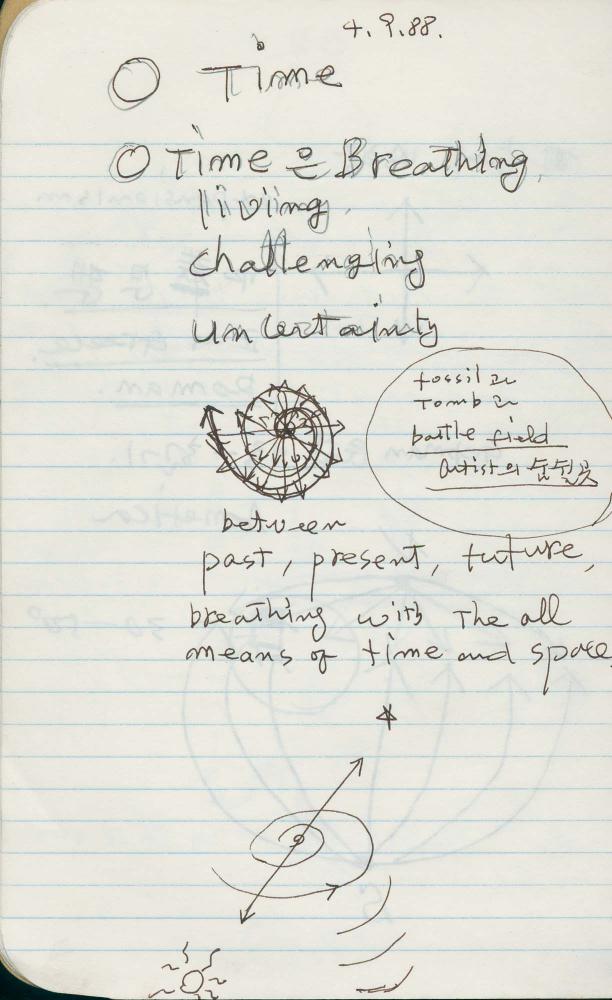 4.9.88.
○ Time
○ Time 은 Breathing,
living,
challenging
uncertainty
fossil과
Tomb과
battle field
artist의
between
past, present, future,
breathing with The all
means of time and space